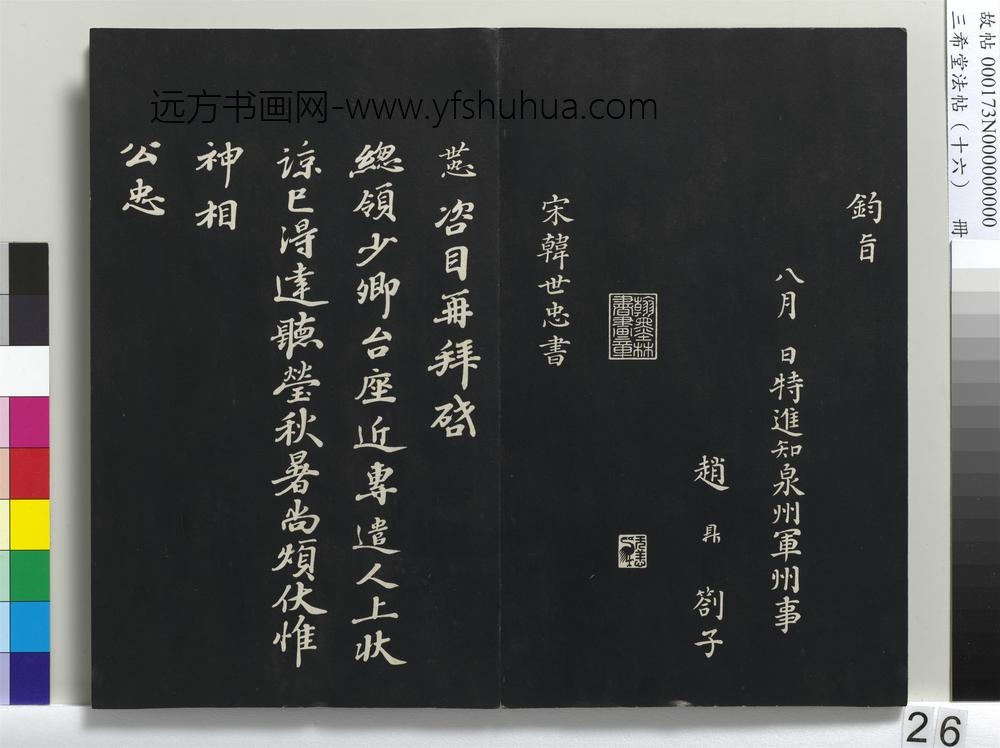 故帖 000173N000000000
三希堂法帖（十六） 冊
远方书画网-www.yfshuhua.com
鈞旨
八月 日特進知泉州軍州事
趙鼎劄子
翰墨林書畫章
宋韓世忠書
咨目再拜啓
總領少卿台座近專遣人上狀
諒已得達聽瑩秋暑尚煩伏惟
神相
公忠
26